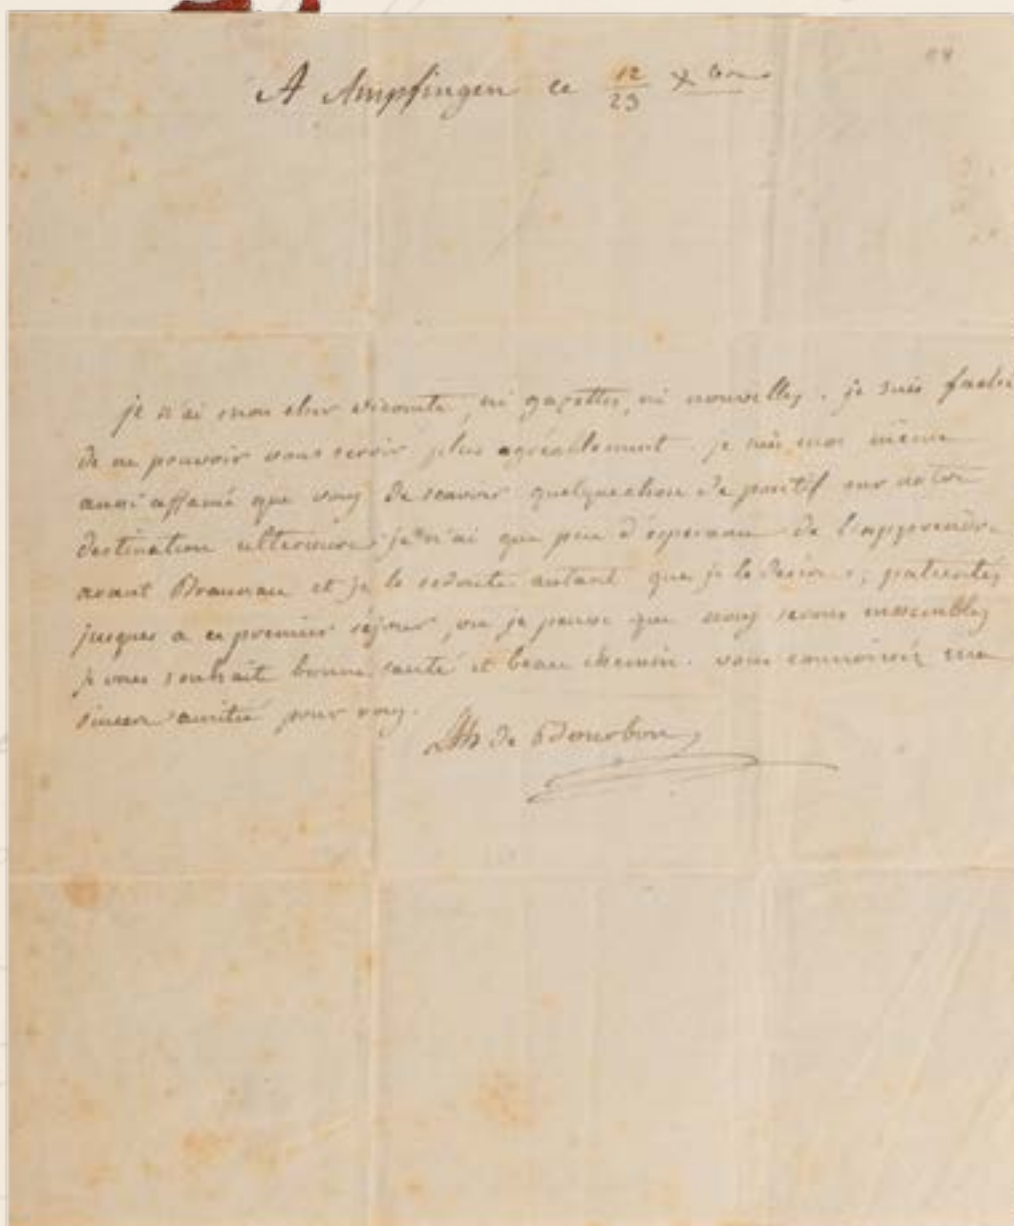 A Ampfingen ce 12/23 Xbre
je n'ai mon cher vicomte, ni gazettes, ni nouvelles. je suis faché
de ne pouvoir vous servir plus agréablement. je suis moi même
aussi affamé que vous de scavoir quelquechose de positif sur notre
destination ulterieure je n'ai que peu d'esperance de l'apprendre
avant Braunau et je le redoute autant que je le desire; patientés
jusques a ce premier séjour, ou je pense que nous serons ensembles
je vous souhait bonne santé et beau chemin. vous connoissés ma
sincere amitié pour vous.
LAH de Bourbon